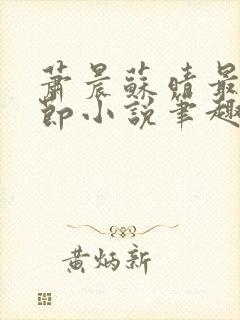 蕭晨蘇晴最
節小說筆趣
黃炳新